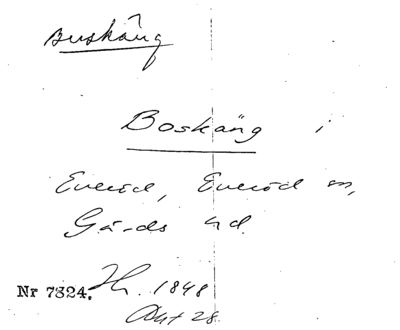 Buskäng
Boskäng i
Everöd, Everöd sn,
Gärds hd.
Nr 7324. Hr. 1848
Akt 28